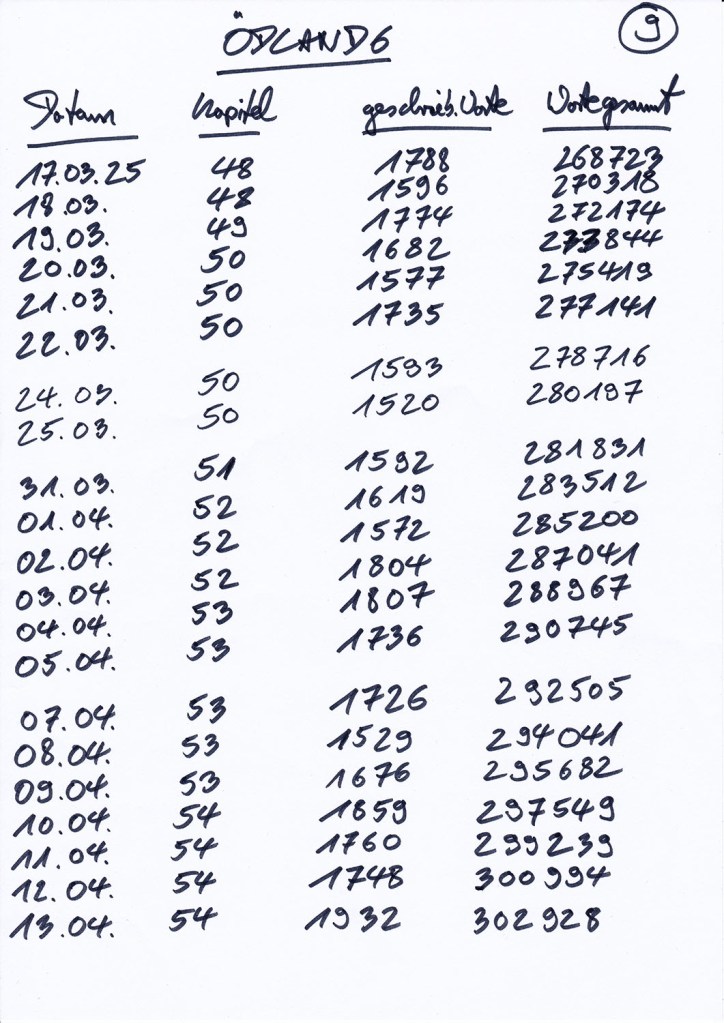 ÖDLAND 6
9
Datum Kapitel geschrieb. Worte Worte gesamt
17.03.25 48 1788 268723
18.03. 48 1596 270318
19.03. 49 1774 272174
20.03. 50 1682 273844
21.03. 50 1577 275419
22.03. 50 1735 277141
24.03. 50 1593 278716
25.03. 50 1520 280197
31.03. 51 1592 281831
01.04. 52 1619 283512
02.04. 52 1572 285200
03.04. 52 1804 287041
04.04. 53 1807 288967
05.04. 53 1736 290745
07.04. 53 1726 292505
08.04. 53 1529 294041
09.04. 53 1676 295682
10.04. 54 1859 297549
11.04. 54 1760 299239
12.04. 54 1748 300994
13.04. 54 1932 302928